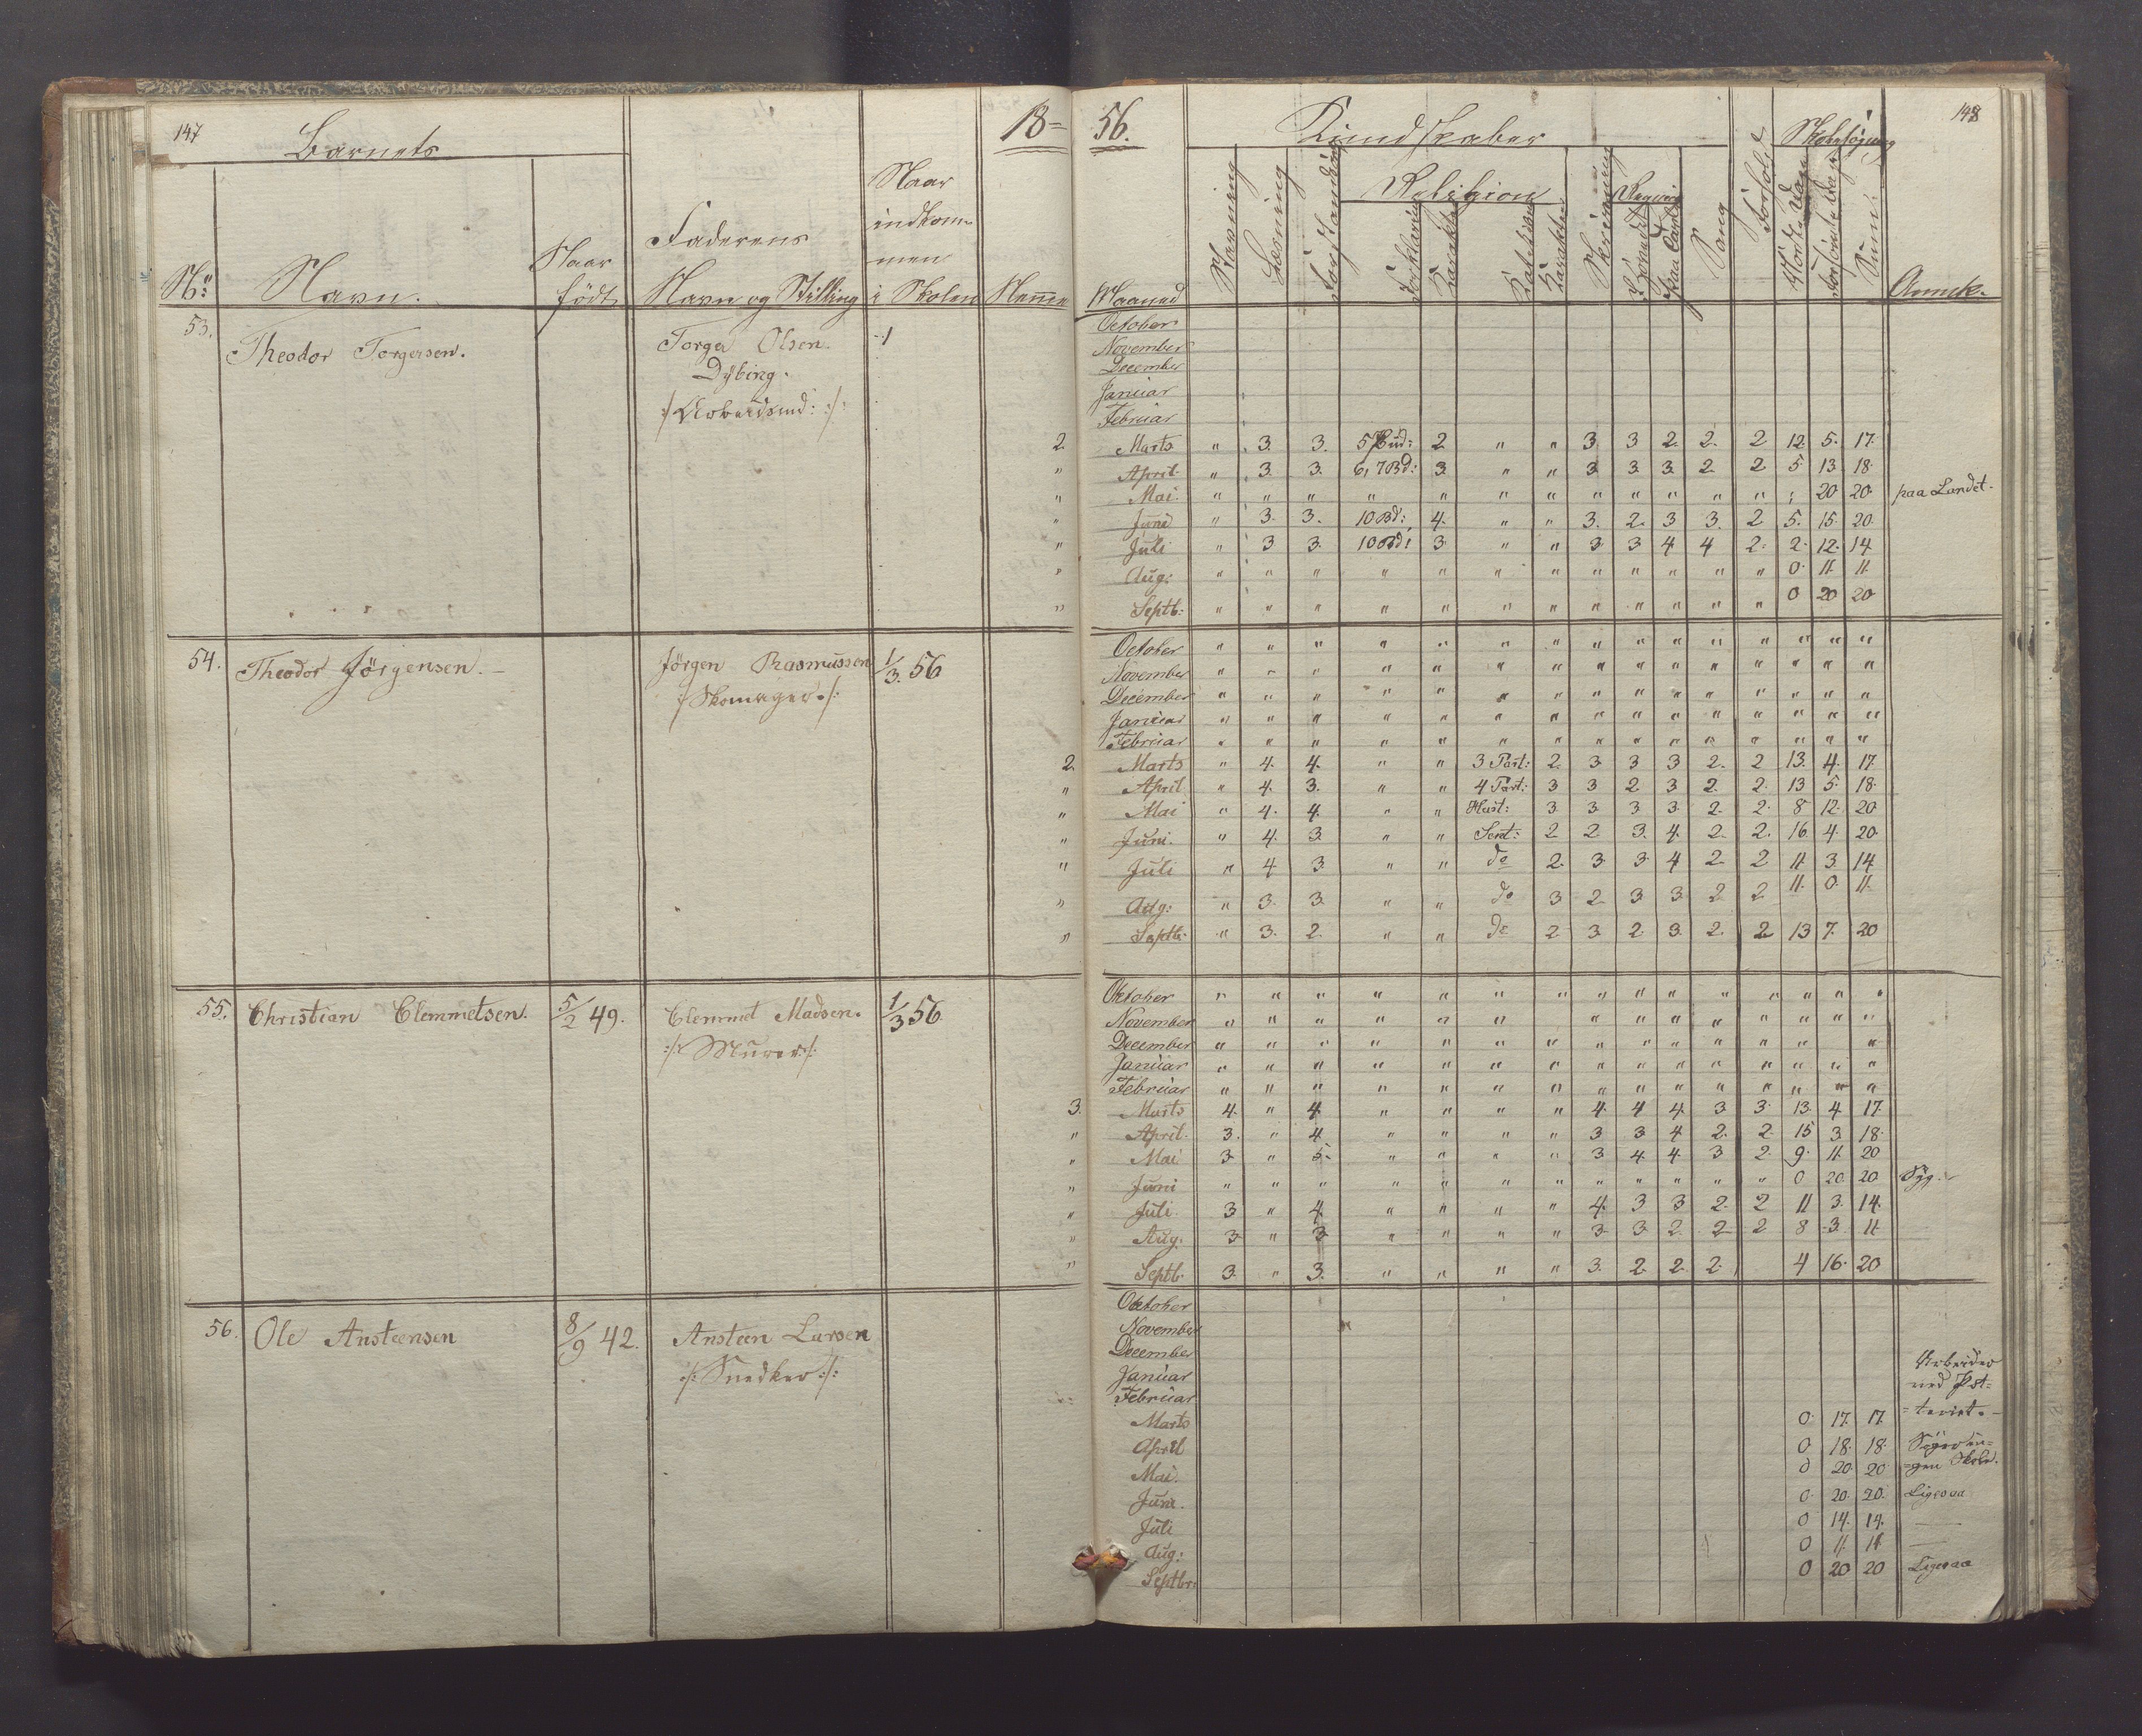 147
Barnets
18=
Naar
indkom=
men
i Skolen
Faderens
Navn og Stilling
Naar
født
No:
Navn.
53.
Theodor Torgersen.
Torger Olsen.
Dybing.
2.
"
"
"
"
"
"
54.
Theodor Jörgensen.
Jörgen Rasmussen
/:Skomager:/
1/3. 56
2.
"
"
"
"
"
"
55.
Christian Clemmetsen.
5/2 49.
Clemmet Madsen.
/:Murer:/
1/3 56.
3.
"
"
"
"
"
"
56.
Ole Ansteensen
8/9 42.
Ansteen Larsen
/:Snedker:/
56.
Kundskaber
148
Skolesøgning
Religion
Stavning
Læsning
Forstandsöv
Forklaring
Karakter
Katekismus
Karakter
Skrivning
Sang
Forhold
Sum
Maaned
Anmk.
October
November
December
Januar
Februar
Marts " 3. 3. 5 Bud: 2 " " 3 3 2. 2. 2 12. 5. 17.
April " 3. 3. 6, 7 Bd: 3. " " 3 3 3 2 2 5 13 18.
Mai. " " " " " " " " " " " " " 20 20. paa Landet.
Juni " 3. 3. 10 Bd: 4. " " 3. 2. 3 3. 2 5. 15. 20.
Juli " 3 3. 10 Bd: 3. " " 3 3 4 4 2. 2. 12. 14
Aug: " " " " " " " " " " " " 0. 11. 11.
Septb: " " " " " " " " " " " " 0 20 20.
October " " " " " " " " " " " " " " "
November " " " " " " " " " " " " " " "
December " " " " " " " " " " " " " " "
Januar " " " " " " " " " " " " " " "
Februar " " " " " " " " " " " " " " "
Marts " 4. 4. " " 3 Part: 2. 3 3 3 2. 2 13. 4. 17.
April " 4. 3. " " 4 Part: 3 3 2 3 2. 2. 13 5. 18.
Mai " 4. 4. " " Hust: 3 3. 3 3. 2. 2. 8 12. 20
Juni. " 4. 3. " " Sent: 2 2. 3. 4. 2. 2. 16. 4. 20.
Juli " 4 3 " " do 2. 3 3 4 2. 2 11 3. 14
Aug: " 3. 3. " " do 3 2 3 3 2 2 11. 0. 11.
Septb: " 3. 2. " " do 2 3. 2. 3. 2. 2 13 7. 20
October " " " " " " " " " " " " " " "
November " " " " " " " " " " " " " "
December " " " " " " " " " " " " " "
Januar " " " " " " " " " " " " " " "
Februar " " " " " " " " " " " " " " "
Marts 4. " 4. " " " " 4. 4 4. 3 3. 13. 4. 17.
April. 3. " 4. " " " " 3 3 4 2. 2. 15 3. 18.
Mai 3. " 5. " " " " 3 4. 4. 3 2. 9. 11. 20
Juni " " " " " " " " " " " " 0 20. 20 Syg.
Juli. 3 " 4. " " " " 4. 3 3 2. 2 11 3. 14.
Aug. 3. " 3 " " " " 3 3 2 2 2 8 3. 11
Septb. 3. " 3. " " " " 3. 2. 2. 2. 4 16. 20
October
November
December
Januar
Arbeider
Februar
Marts 0. 17. 17.
April 0. 18. 18.
Mai. 0 20. 20 =gen Skole.
Juni. 0. 20. 20. Ligesaa
Juli 0 14. 14. —
Aug: 0 11. 11 —
Septbr: 0 20 20 Ligesaa